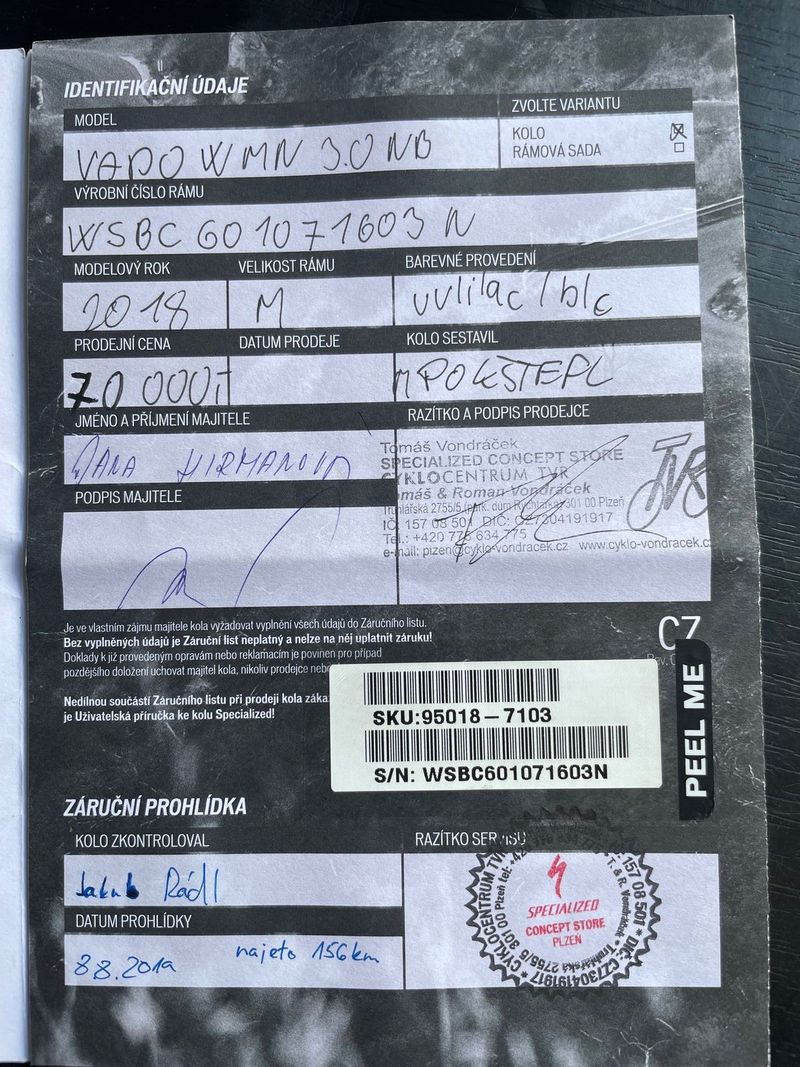 IDENTIFIKAČNÍ ÚDAJE
MODEL
ZVOLTE VARIANTU
VADO WMN 3.0 NB
KOLO
RÁMOVÁ SADA
VÝROBNÍ ČÍSLO RÁMU
WSBC 601071603 N
MODELOVÝ ROK
VELIKOST RÁMU
BAREVNÉ PROVEDENÍ
2018
M
uvlilac / blc
PRODEJNÍ CENA
DATUM PRODEJE
KOLO SESTAVIL
70 000
JMÉNO A PŘÍJMENÍ MAJITELE
RAZÍTKO A PODPIS PRODEJCE
Tomáš Vondráček
SPECIALIZED CONCEPT STORE
CYKLOCENTRUM TVR
Tomáš & Roman Vondráček
Truhlářská 2755/5 (park. dům Rychtářka) 301 00 Plzeň
IČ: 157 08 501 DIČ: CZ7304191917
Tel.: +420 775 634 775
e-mail: plzen@cyklo-vondracek.cz www.cyklo-vondracek.cz
TVR
JANA HIRMANOVÁ
PODPIS MAJITELE
Je ve vlastním zájmu majitele kola vyžadovat vyplnění všech údajů do Záručního listu.
Bez vyplněných údajů je Záruční list neplatný a nelze na něj uplatnit záruku!
Doklady k již provedeným opravám nebo reklamacím je povinen pro případ
pozdějšího doložení uchovat majitel kola, nikoliv prodejce nebo
Nedílnou součástí Záručního listu při prodeji kola záka
je Uživatelská příručka ke kolu Specialized!
CZ
Rev.
SKU:95018-7103
S/N: WSBC601071603N
PEEL ME
ZÁRUČNÍ PROHLÍDKA
KOLO ZKONTROLOVAL
RAZÍTKO SERVISU
Jakub Rádl
DATUM PROHLÍDKY
8.8.2019 najeto 156km
SPECIALIZED
CONCEPT STORE
PLZEŇ
CYKLOCENTRUM TVR * T. & R. Vondráček * Truhlářská 2755/5 301 00 Plzeň tel: +42
157 08 501 * DIČ: CZ7304191917